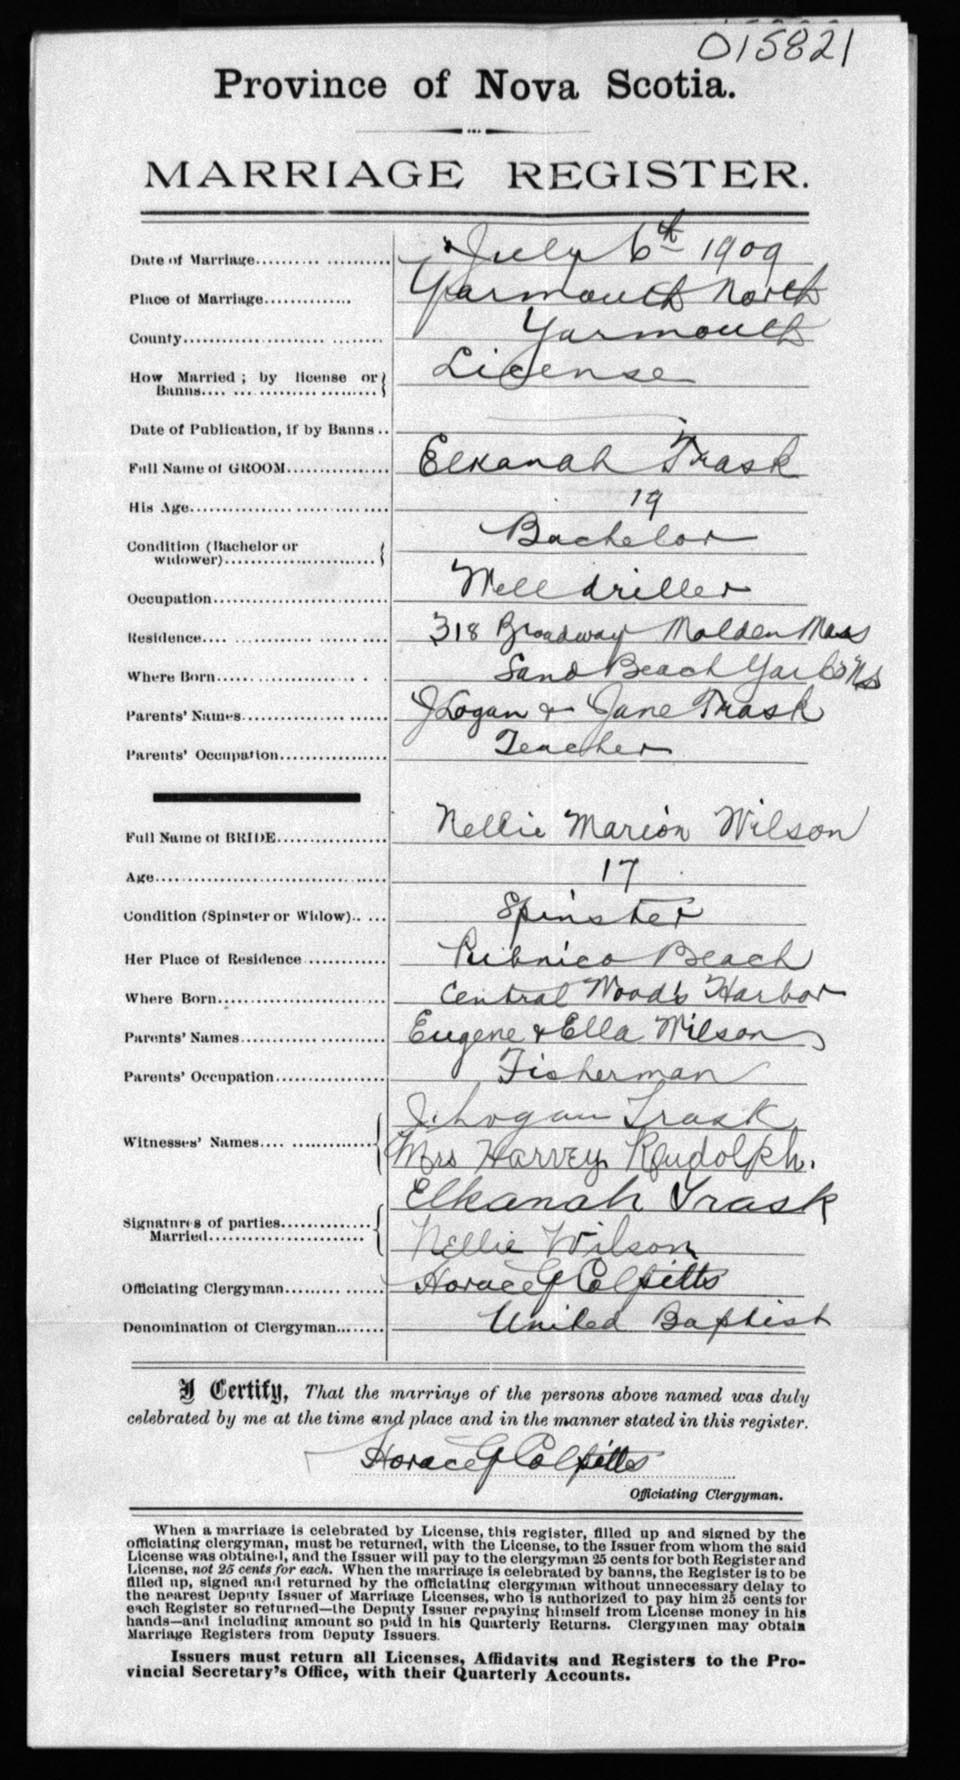 015821
Province of Nova Scotia.
MARRIAGE REGISTER.
Date of Marriage.................... July 6th 1909
Place of Marriage.............. Yarmouth North
County............................... Yarmouth
How Married; by license or Banns........................ License
Date of Publication, if by Banns..
Full Name of GROOM................ Elkanah Trask
His Age............................... 19
Condition (Bachelor or widower)........................ Bachelor
Occupation........................... Well driller
Residence............................ 318 Broadway Malden Mass
Where Born.......................... Sand Beach Yar Co NS
Parents' Names...................... J Logan & Jane Trask
Parents' Occupation................. Teacher
Full Name of BRIDE................. Nellie Marion Wilson
Age................................... 17
Condition (Spinster or Widow)..... Spinster
Her Place of Residence............ Pubnico Beach
Where Born.......................... Central Wood's Harbor
Parents' Names...................... Eugene & Ella Wilson
Parents' Occupation................. Fisherman
J. Logan Trask
Witnesses' Names.................... Mrs Harvey Rudolph.
Elkanah Trask
Signatures of parties Married........................ Nellie Wilson
Officiating Clergyman............... Horace G Colpitts
Denomination of Clergyman........ United Baptist
I Certify, That the marriage of the persons above named was duly
celebrated by me at the time and place and in the manner stated in this register.
Horace G Colpitts
Officiating Clergyman.
When a marriage is celebrated by License, this register, filled up and signed by the
officiating clergyman, must be returned, with the License, to the Issuer from whom the said
License was obtained, and the Issuer will pay to the clergyman 25 cents for both Register and
License, not 25 cents for each. When the marriage is celebrated by banns, the Register is to be
filled up, signed and returned by the officiating clergyman without unnecessary delay to
the nearest Deputy Issuer of Marriage Licenses, who is authorized to pay him 25 cents for
each Register so returned—the Deputy Issuer repaying himself from License money in his
hands—and including amount so paid in his Quarterly Returns. Clergymen may obtain
Marriage Registers from Deputy Issuers.
Issuers must return all Licenses, Affidavits and Registers to the Pro-
vincial Secretary's Office, with their Quarterly Accounts.